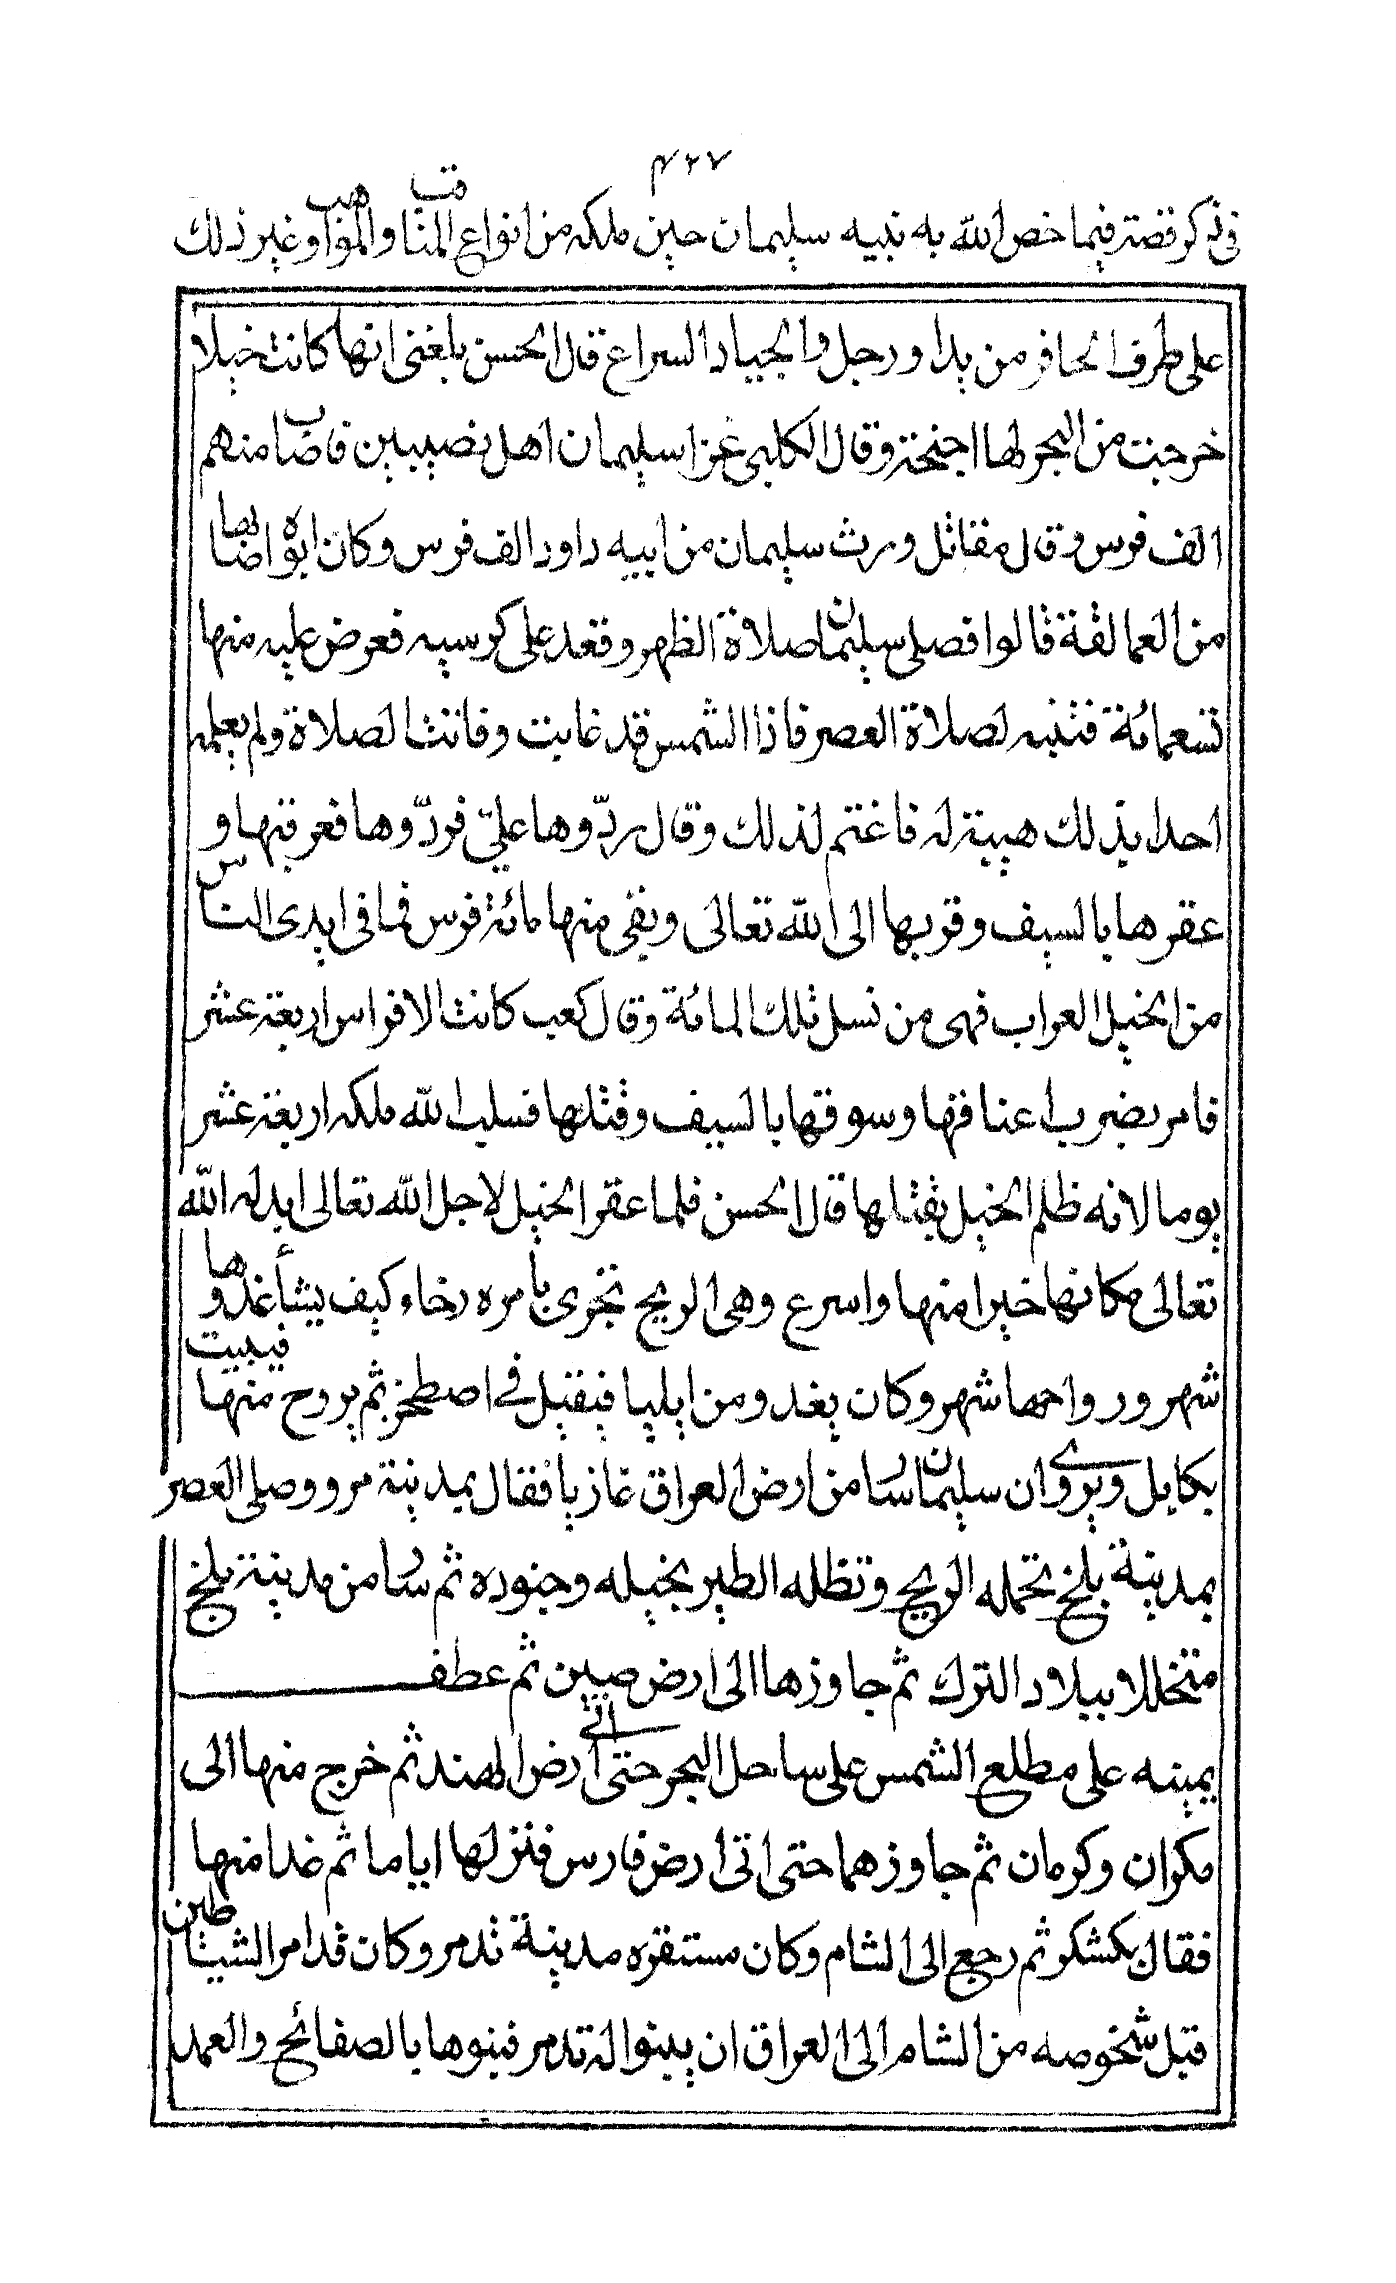 ٤٢٧
في ذكر قصة فيما خص الله به نبيه سليمان حين ملكه من انواع المناقب والمواهب وغير ذلك
على طرف الحافر من يد او رجل والجياد السراع قال الحسن بلغنى انها كانت خيلا
خرجت من البحر لها اجنحة وقال الكلبى غزا سليمان اهل نصيبين فاصاب منهم
الف فرس وقال مقاتل ورث سليمان من ابيه داود الف فرس وكان ابوه اصابها
من العمالقة قالوا فصلى سليمان صلاة الظهر وقعد على كرسيه فعرض عليه منها
تسعمائة فتنبه لصلاة العصر فاذا الشمس قد غابت وفاتت الصلاة ولم يعلمه
احدا بذلك هيبة له فاغتم لذلك وقال ردّوها علىّ فردّوها فعرقبها و
عقرها بالسيف وقربها الى الله تعالى وبقى منها مائة فرس فما فى ايدى الناس
من الخيل العراب فهى من نسل تلك المائة وقال كعب كانت الافراس اربعة عشر
فامر بضرب اعناقها وسوقها بالسيف وقتلها فسلب الله ملكه اربعة عشر
يوما لانه ظلم الخيل بقتلها قال الحسن فلما عقر الخيل لاجل الله تعالى ابدله الله
تعالى مكانها خيرا منها واسرع وهى الريح تجرى بأمره رخاء كيف يشأ غدوها
شهر ورواحها شهر وكان يغدو من ايليا فيقيل في اصطخر ثم يروح منها فيبيت
بكابل ويروى ان سليمان سار من ارض العراق غازيا فقال بمدينة مرو وصلى العصر
بمدينة بلخ تحمله الريح وتظله الطير بخيله وجنوده ثم سار من مدينة بلخ
متخللا ببلاد الترك ثم جاوزها الى ارض صين ثم عطف
يمينه على مطلع الشمس على ساحل البحر حتى اتى ارض الهند ثم خرج منها الى
مكران وكرمان ثم جاوزهما حتى اتى ارض فارس فنزلها اياما ثم غدا منها
فقال بكشكر ثم رجع الى الشام وكان مستقره مدينة تدمر وكان قد امر الشياطين
قبل شخوصه من الشام الى العراق ان يبنوا له تدمر فبنوها بالصفائح والعمد